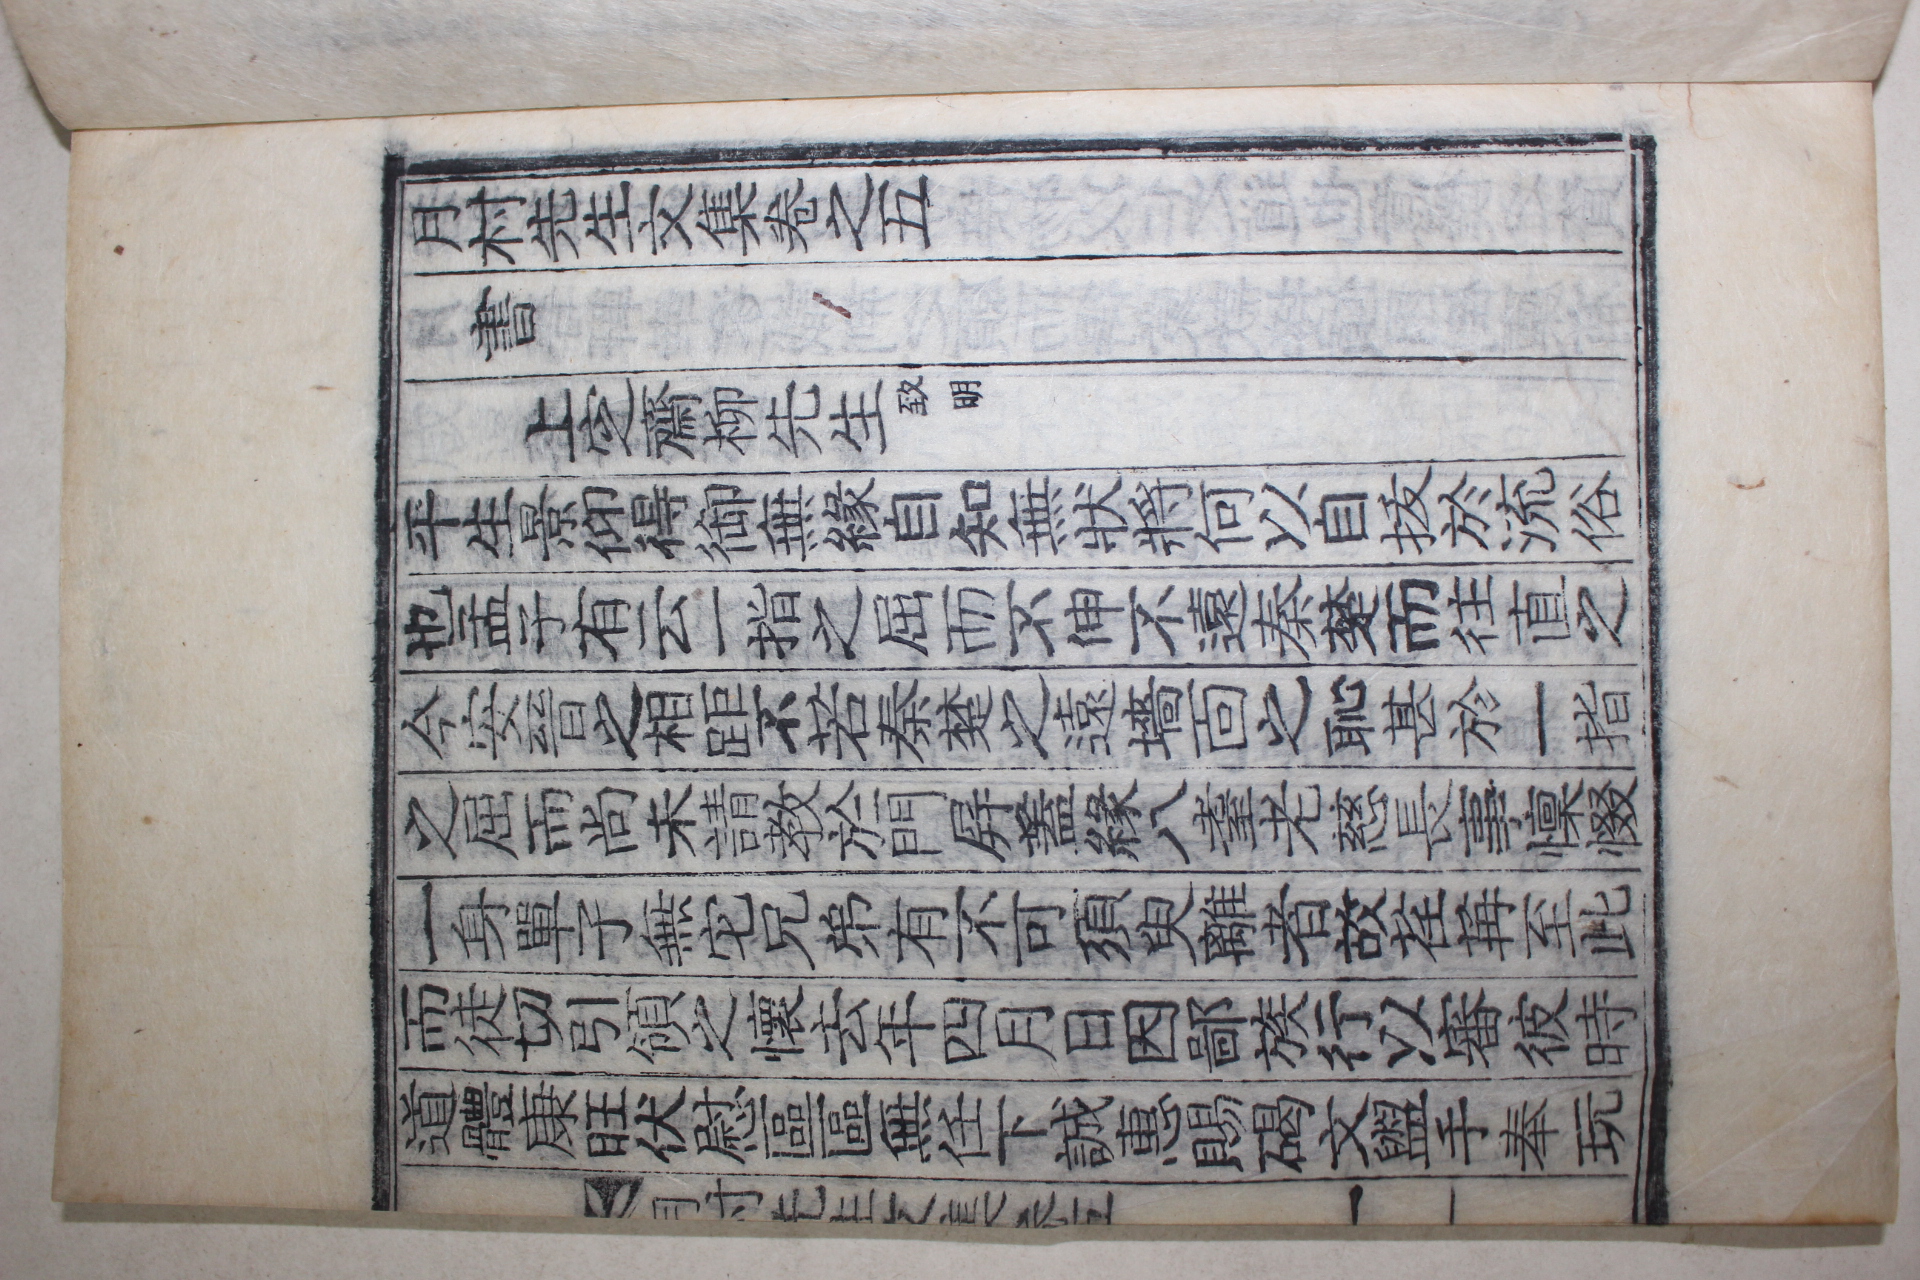 月村先生文集卷之五
書
上定齋柳先生致明
平生景仰得御無緣自知無狀將何以自拔於流俗
也孟子有云一指之屈而不伸不遠秦楚而往直之
今安晉之相距不若秦楚之遠墻面之恥甚於一指
之屈而尚未請教於門屛蓋緣八耋老慈長事懍惙
一身單子無它兄弟有不可須臾離者故荏苒至此
而徒切引領之懷去年四月日因鄙族行以審彼時
道體康旺伏慰區區無任下誠惠賜碣文盥手奉玩
月村先生文集卷五
一